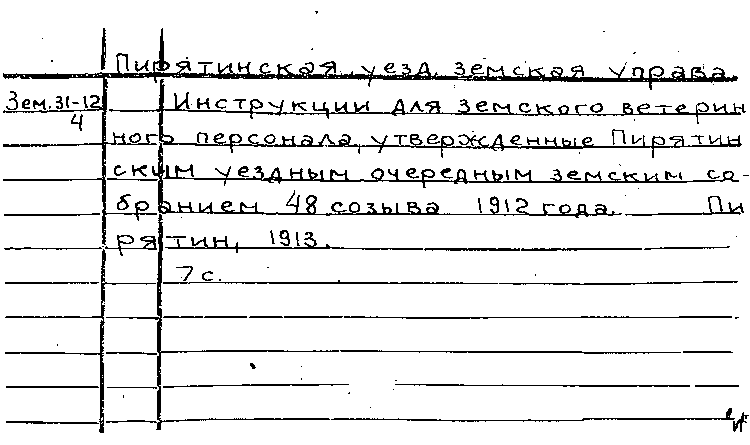 Пирятинская уезд. земская управа.
Зем.31-12 Инструкции для земского ветерин
4
ного персонала, утвержденные Пирятин
ским уездным очередным земским со-
бранием 48 созыва 1912 года. Пи
рятин, 1913.
7 с.